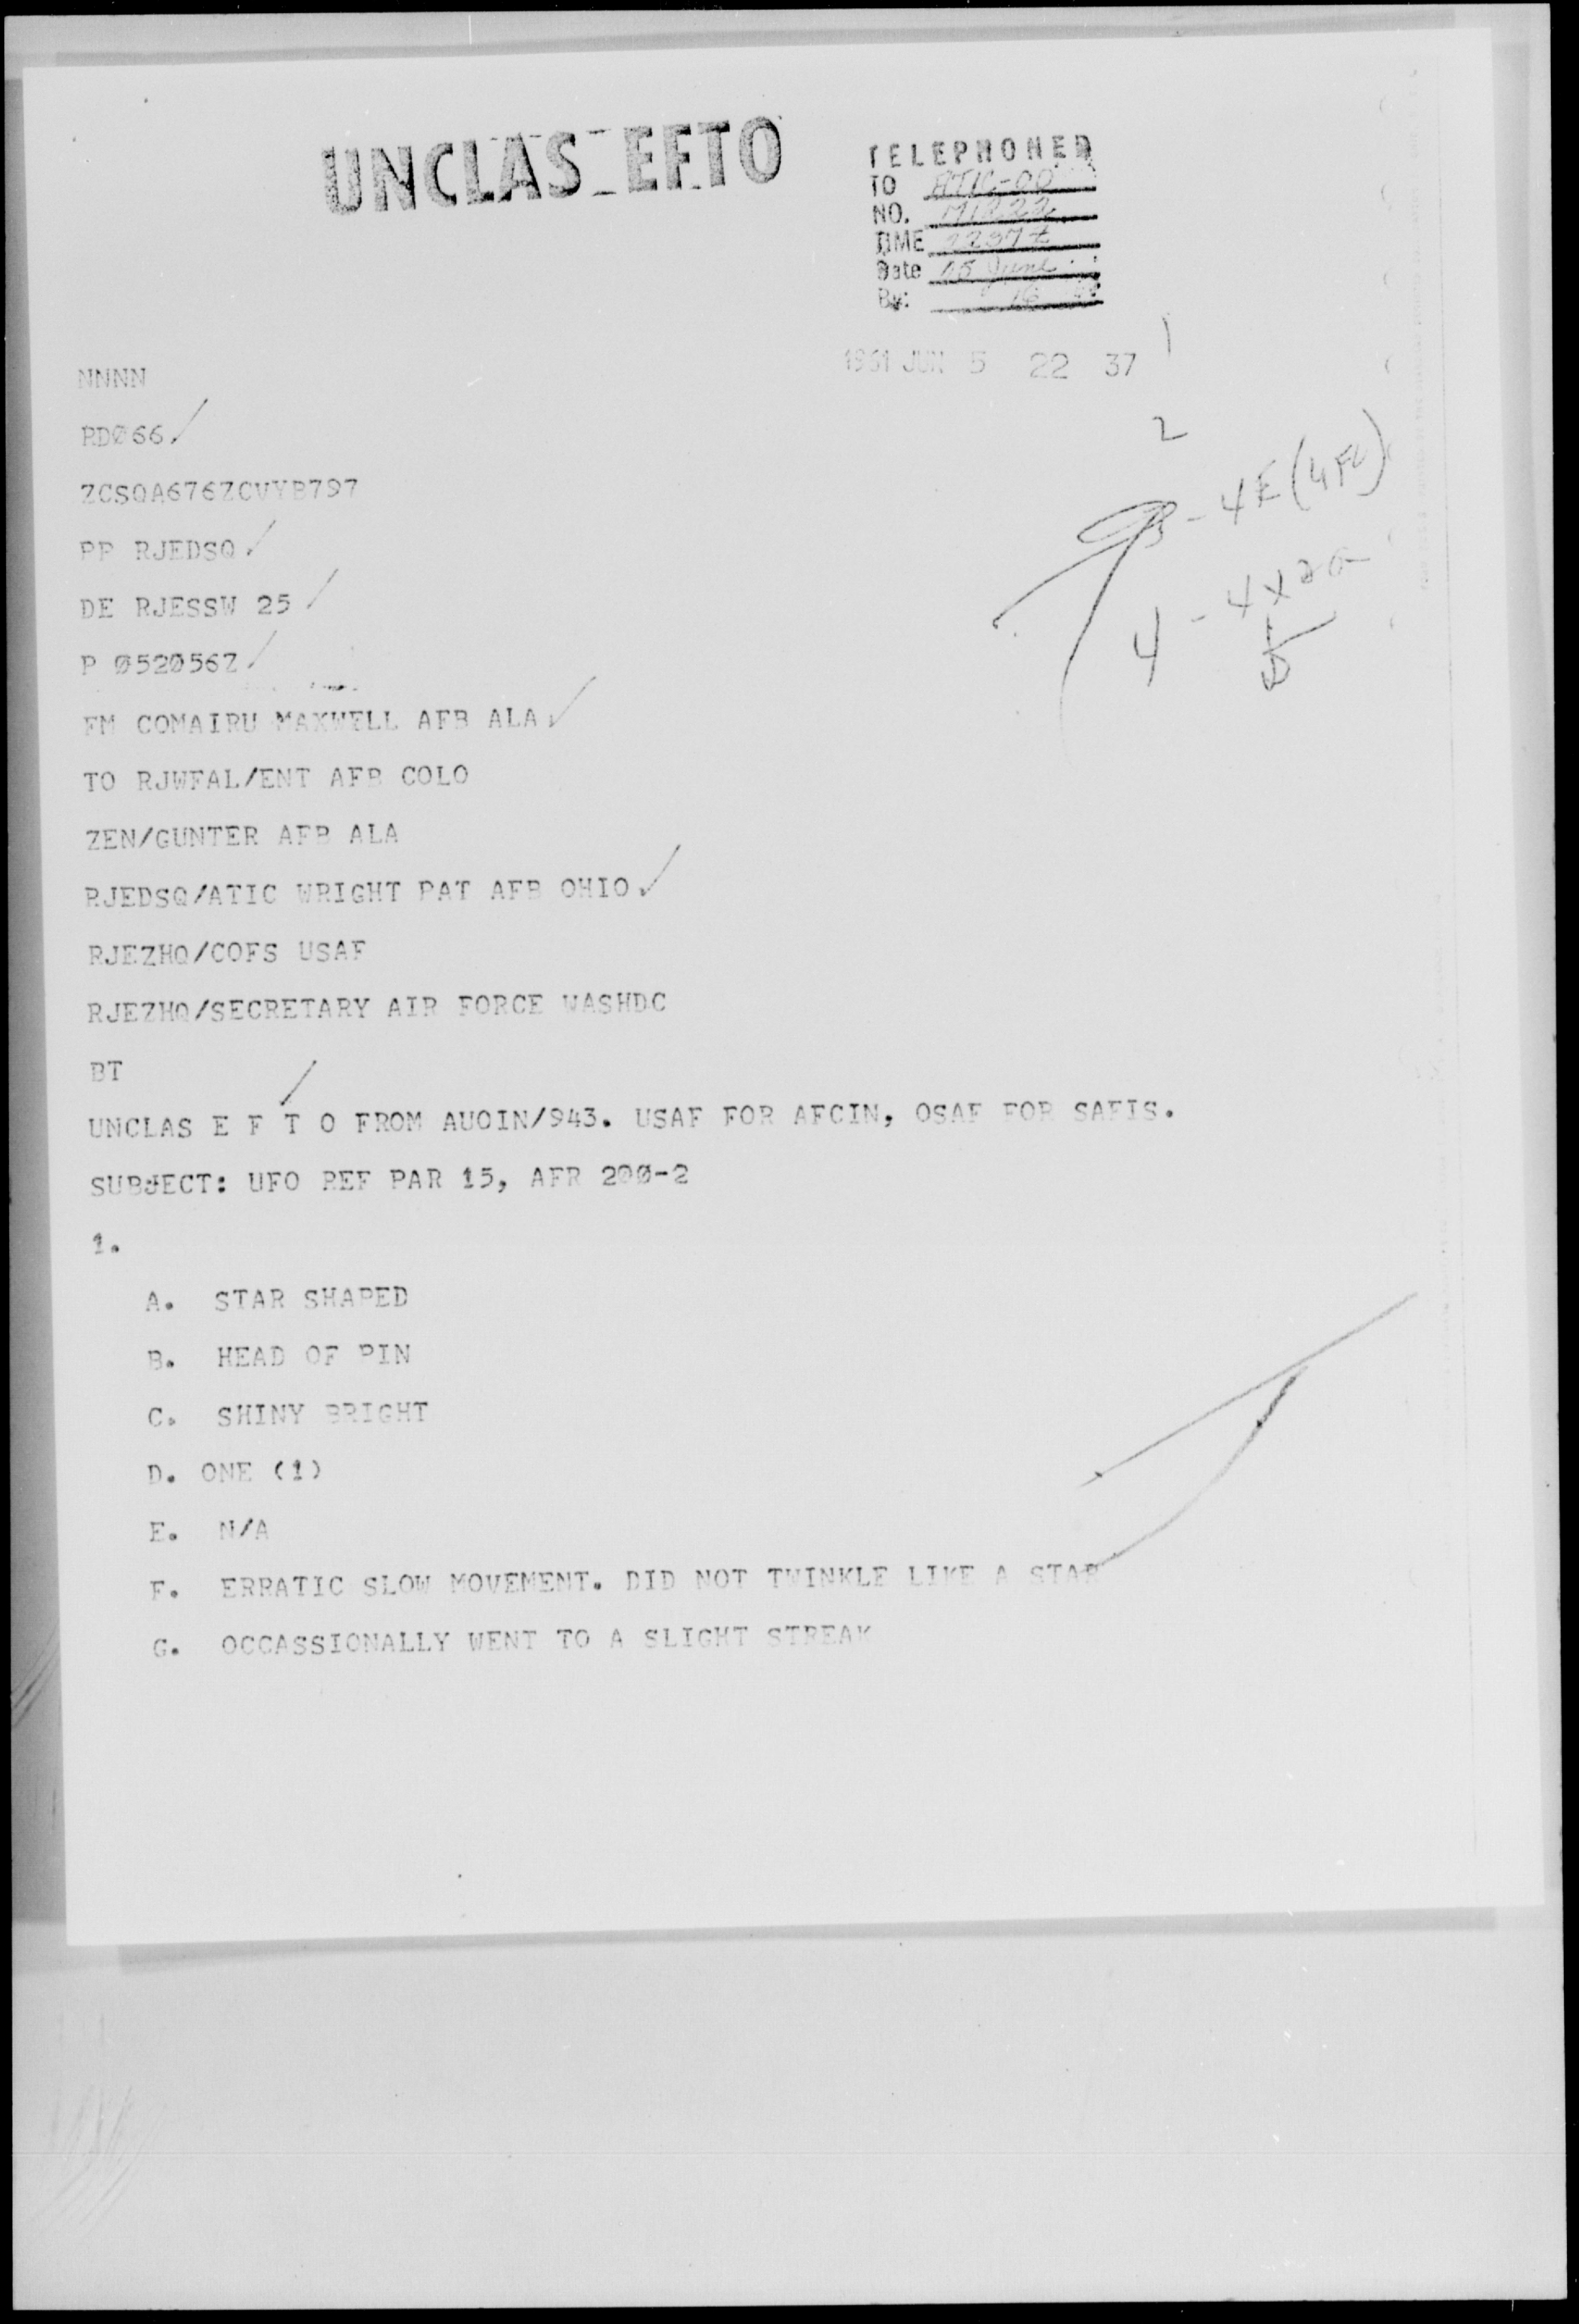 UNCLAS EFTO
TELEPHONED
TO ATIC-OO
NO. M1222
TIME
Date 05 June
By:
1961 JUN 5 22 37
NNNN
RDØ66
ZCSQA676ZCVYB797
PP RJEDSQ
DE RJESSW 25
P Ø52Ø56Z
FM COMAIRU MAXWELL AFB ALA
TO RJWFAL/ENT AFB COLO
ZEN/GUNTER AFB ALA
RJEDSQ/ATIC WRIGHT PAT AFB OHIO
RJEZHQ/COFS USAF
RJEZHQ/SECRETARY AIR FORCE WASHDC
BT
UNCLAS E F T O FROM AUOIN/943. USAF FOR AFCIN, OSAF FOR SAFIS.
SUBJECT: UFO REF PAR 15, AFR 2ØØ-2
1.
A. STAR SHAPED
B. HEAD OF PIN
C. SHINY BRIGHT
D. ONE (1)
E. N/A
F. ERRATIC SLOW MOVEMENT. DID NOT TWINKLE LIKE A STAR
G. OCCASSIONALLY WENT TO A SLIGHT STREAK